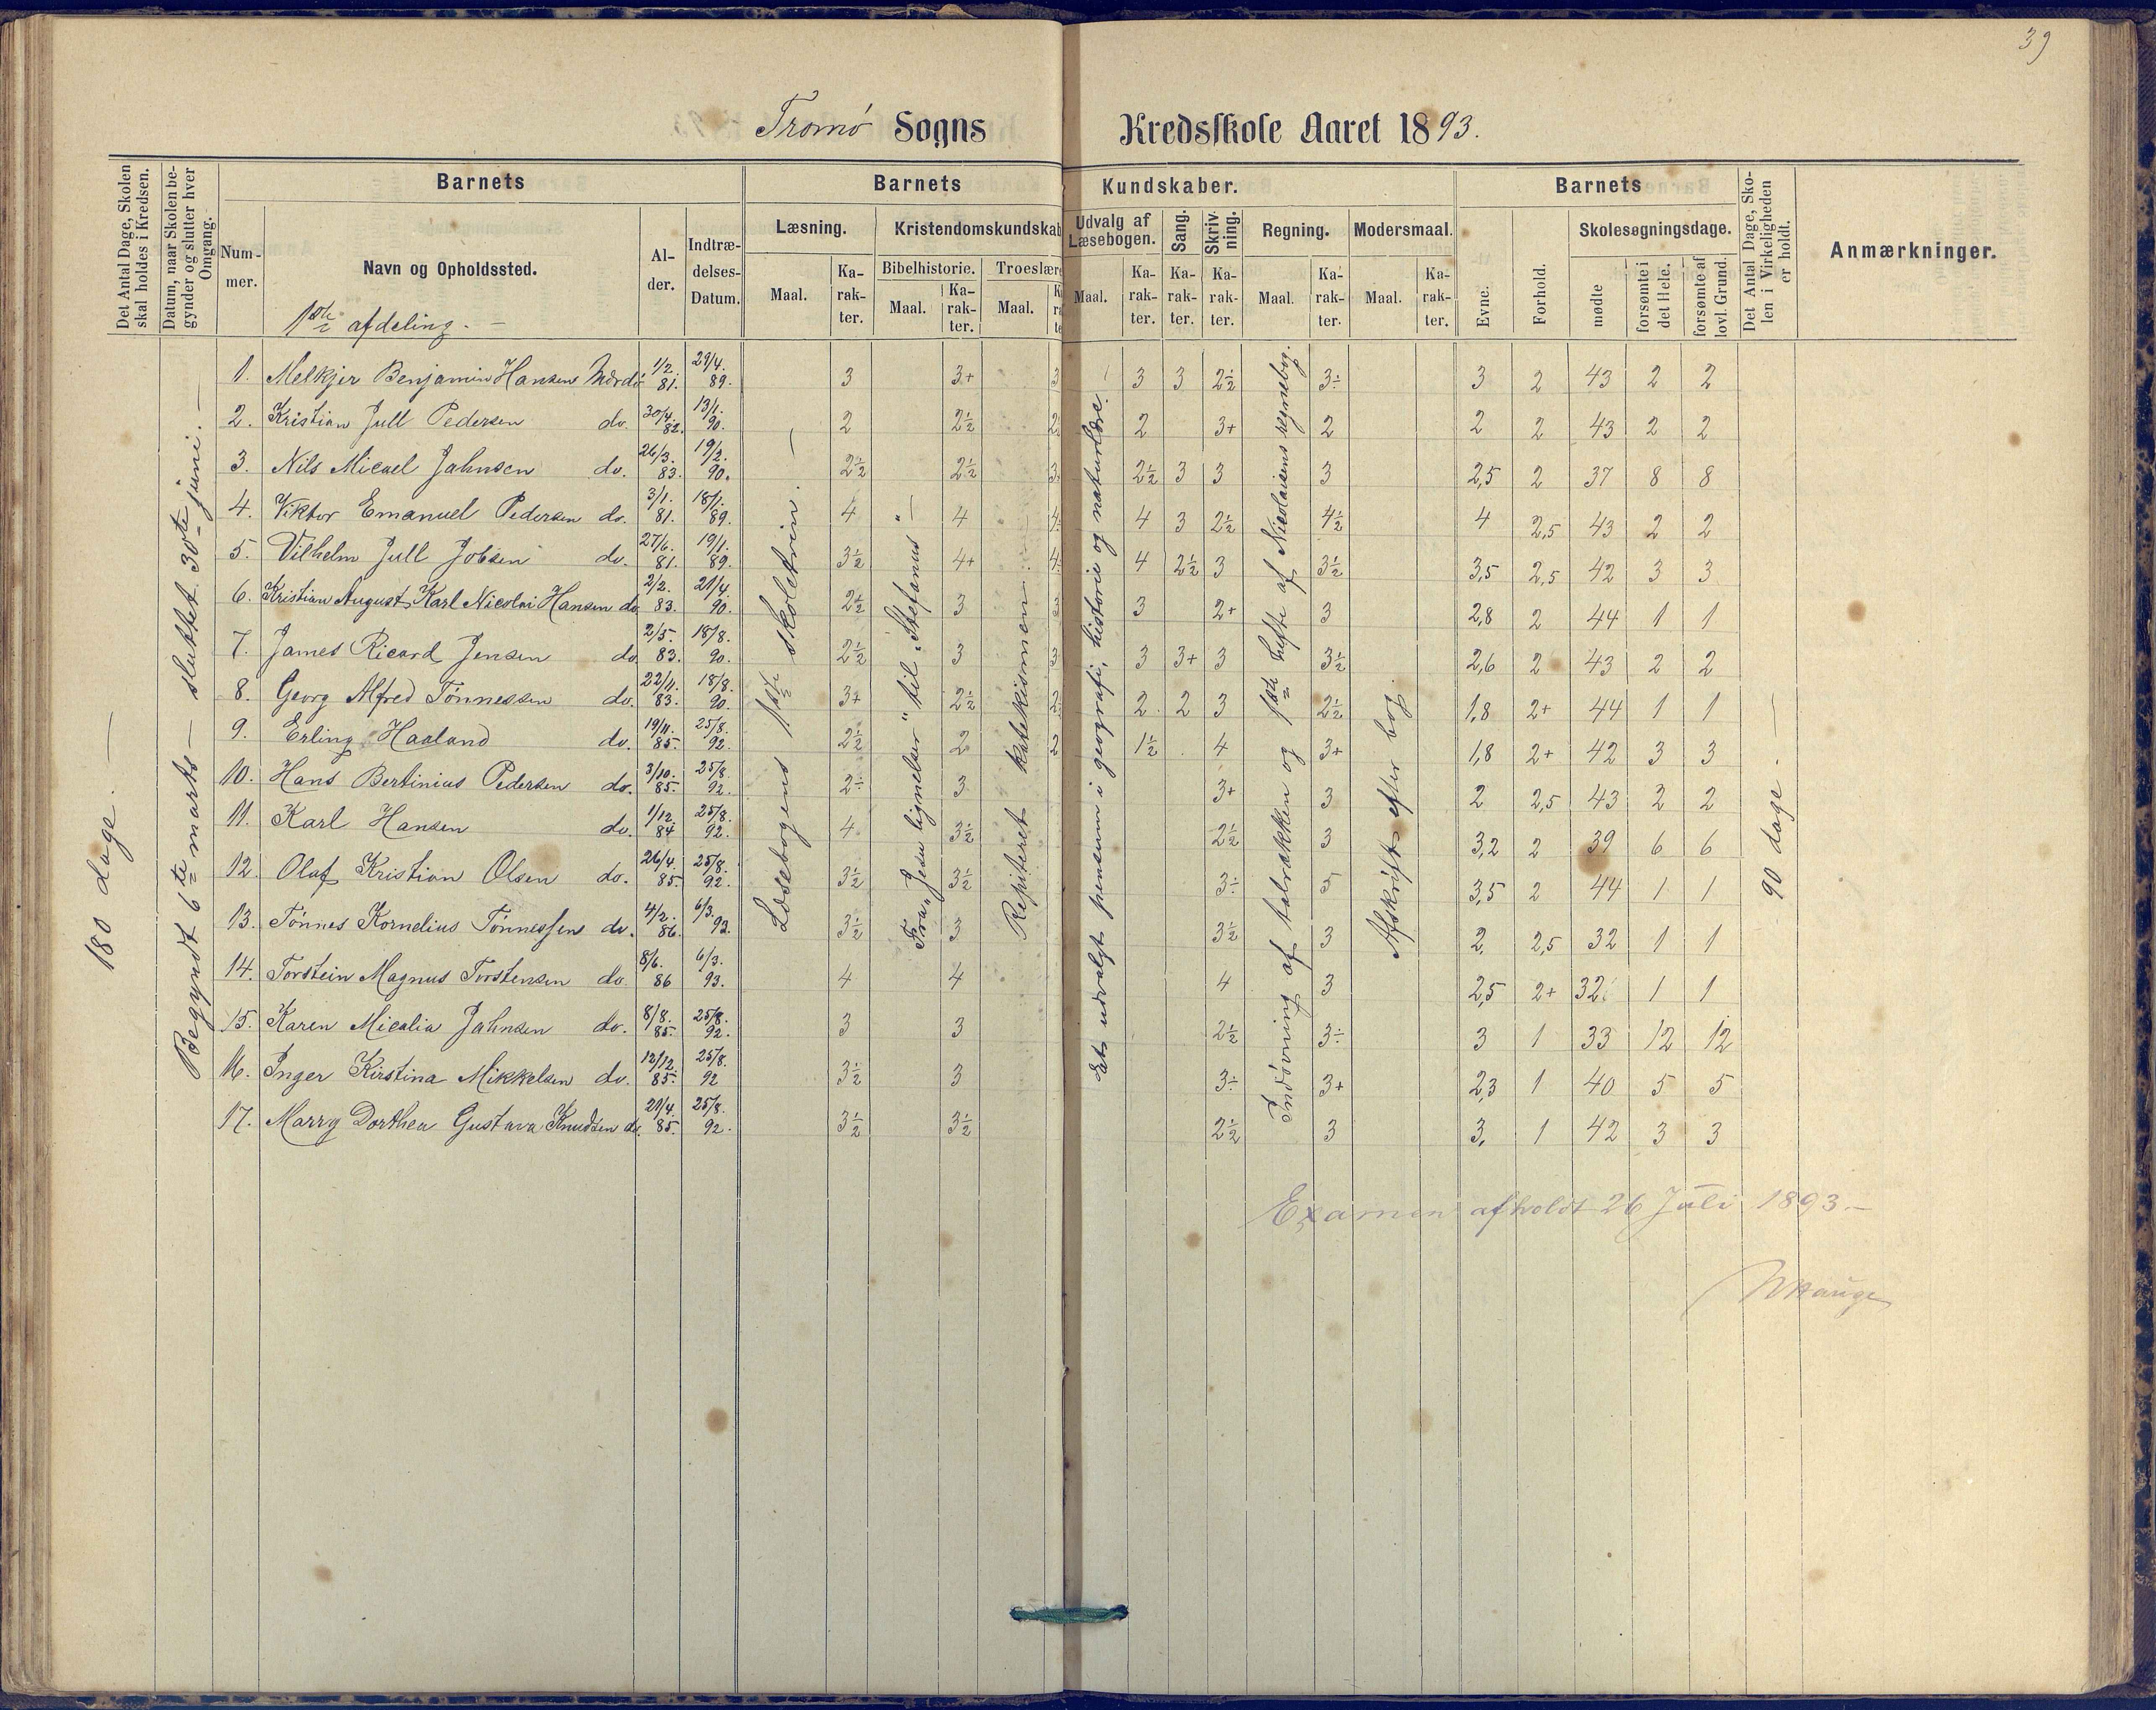 39
Tromø Sogns Kredsskole Aaret 1893.
Det Antal Dage, Skolen skal holdes i Kredsen.
Datum, naar Skolen begynder og slutter hver Omgang.
Barnets
Barnets Kundskaber.
Barnets
Det Antal Dage, Skolen i Virkeligheden er holdt.
Anmærkninger.
Nummer.
Navn og Opholdssted.
Alder.
Indtrædelses-Datum.
Læsning.
Kristendomskundskab
Udvalg af Læsebogen.
Sang.
Skrivning.
Regning.
Modersmaal.
Evne.
Forhold.
Skolesøgningsdage.
Bibelhistorie. Troeslære
Maal. Karakter. Maal. Karakter. Maal.
Maal. Karakter. Karakter. Karakter. Maal. Karakter. Maal. Karakter.
mødte
forsømte i det Hele.
forsømte af lovl. Grund.
1ste afdeling. —
180 dage. —
Begyndt 6te marts — sluttet 30te juni. —
Læsebogens 1ste skoletrin. —
Fra „Jesu lignelser" til „Stefanus" —
Repiteret katekismen —
Et udvalgt pensum i geografi, historie og naturlære.
Indøvning af talrækken og 1ste hefte af Nicolaisens regnebog.
Afskrift efter bog.
90 dage. —
1. Melkjer Benjamin Hansen Mærdø 1/2. 81. 29/4. 89. 3 3+ 3 3 3 2½ 3÷ 3 2 43 2 2
2. Kristian Jull Pedersen do. 30/4. 82. 13/1. 90. 2 2½ 2 2 3+ 2 2 2 43 2 2
3. Nils Micael Jahnsen do. 26/3. 83. 19/2. 90. 2½ 2½ 3 2½ 3 3 3 2,5 2 37 8 8
4. Viktor Emanuel Pedersen do. 3/1. 81. 18/1. 89. 4 4 4 4 3 2½ 4½ 4 2,5 43 2 2
5. Vilhelm Jull Jobsen do. 27/6. 81. 19/1. 89. 3½ 4+ 4 4 2½ 3 3½ 3,5 2,5 42 3 3
6. Kristian August Karl Nicolai Hansen do. 2/2. 83. 21/4. 90. 2½ 3 3 3 2+ 3 2,8 2 44 1 1
7. James Ricard Jensen do. 2/5. 83. 18/8. 90. 2½ 3 3 3 3+ 3 3½ 2,6 2 43 2 2
8. Georg Alfred Tønnessen do. 22/11. 83. 18/8. 90. 3+ 2½ 2 2 2 3 2½ 1,8 2+ 44 1 1
9. Erling Haaland do. 19/11. 85. 25/8. 92. 2½ 2 2 1½ 4 3+ 1,8 2+ 42 3 3
10. Hans Bertinius Pedersen do. 3/10. 85. 25/8. 92. 2÷ 3 3+ 3 2 2,5 43 2 2
11. Karl Hansen do. 1/12. 84 25/8. 92. 4 3½ 2½ 3 3,2 2 39 6 6
12. Olaf Kristian Olsen do. 26/4. 85. 25/8. 92. 3½ 3½ 3÷ 5 3,5 2 44 1 1
13. Tønnes Kornelius Tønnessen do. 4/2. 86. 6/3. 93. 3½ 3 3½ 3 2, 2,5 32 1 1
14. Torstein Magnus Torstensen do. 8/6. 86 6/3. 93. 4 4 4 3 2,5 2+ 32 1 1
15. Karen Micalia Jahnsen do. 8/8. 85. 25/8. 92. 3 3 2½ 3÷ 3 1 33 12 12
16. Inger Kirstina Mikkelsen do. 12/12. 85. 25/8. 92 3½ 3 3÷ 3+ 2,3 1 40 5 5
17. Marry Dorthea Gustava Knudsen do. 21/4. 85. 25/8. 92. 3½ 3½ 2½ 3 3, 1 42 3 3
Examen afholdt 26 Juli 1893. —
Hauge